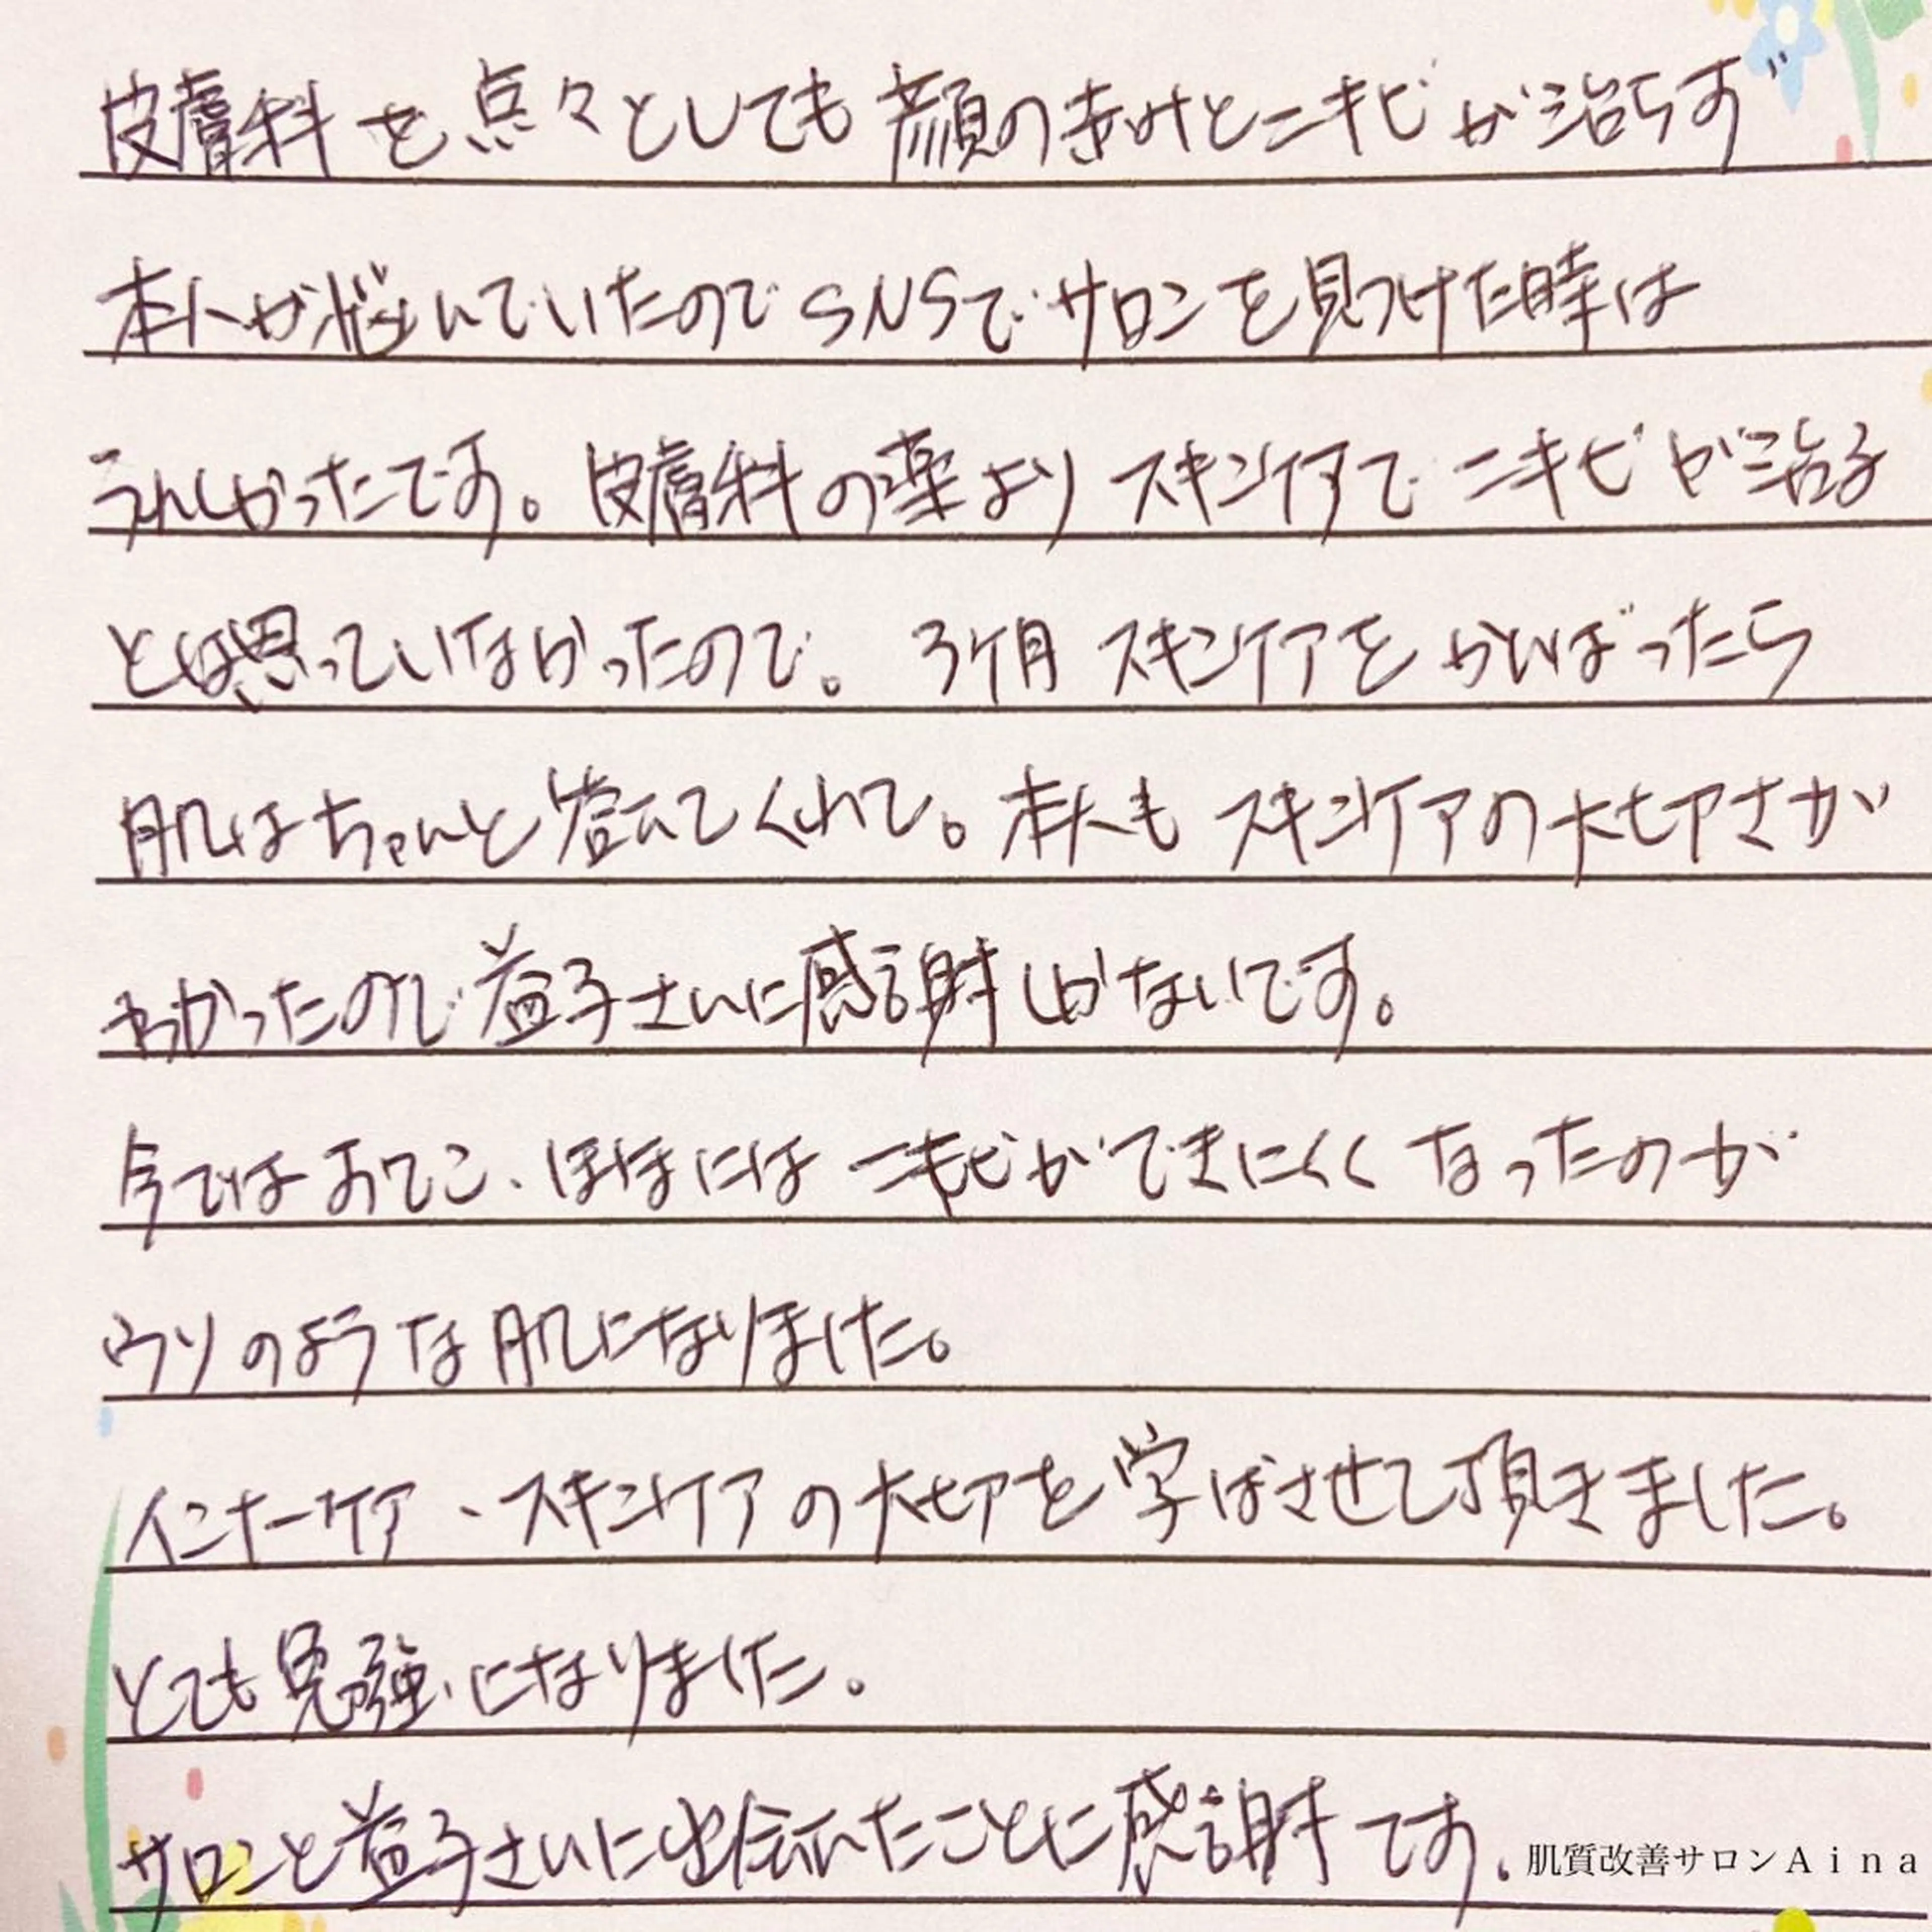 皮膚科を点々としても顔の赤みとニキビが治らず
本人が悩んでいたのでSNSでサロンを見つけた時は
うれしかったです。皮膚科の薬よりスキンケアでニキビが治る
とは思っていなかったので。3ヶ月スキンケアをがんばったら
肌はちゃんと答えてくれて。本人もスキンケアの大切さが
わかったので益子さんに感謝しかないです。
今ではおでこ、ほほにはニキビができにくくなったのが
ウソのような肌になりました。
インナーケア、スキンケアの大切を学ばさせて頂きました。
とても勉強になりました。
サロンと益子さんに出会れたことに感謝です。
肌質改善サロンAina